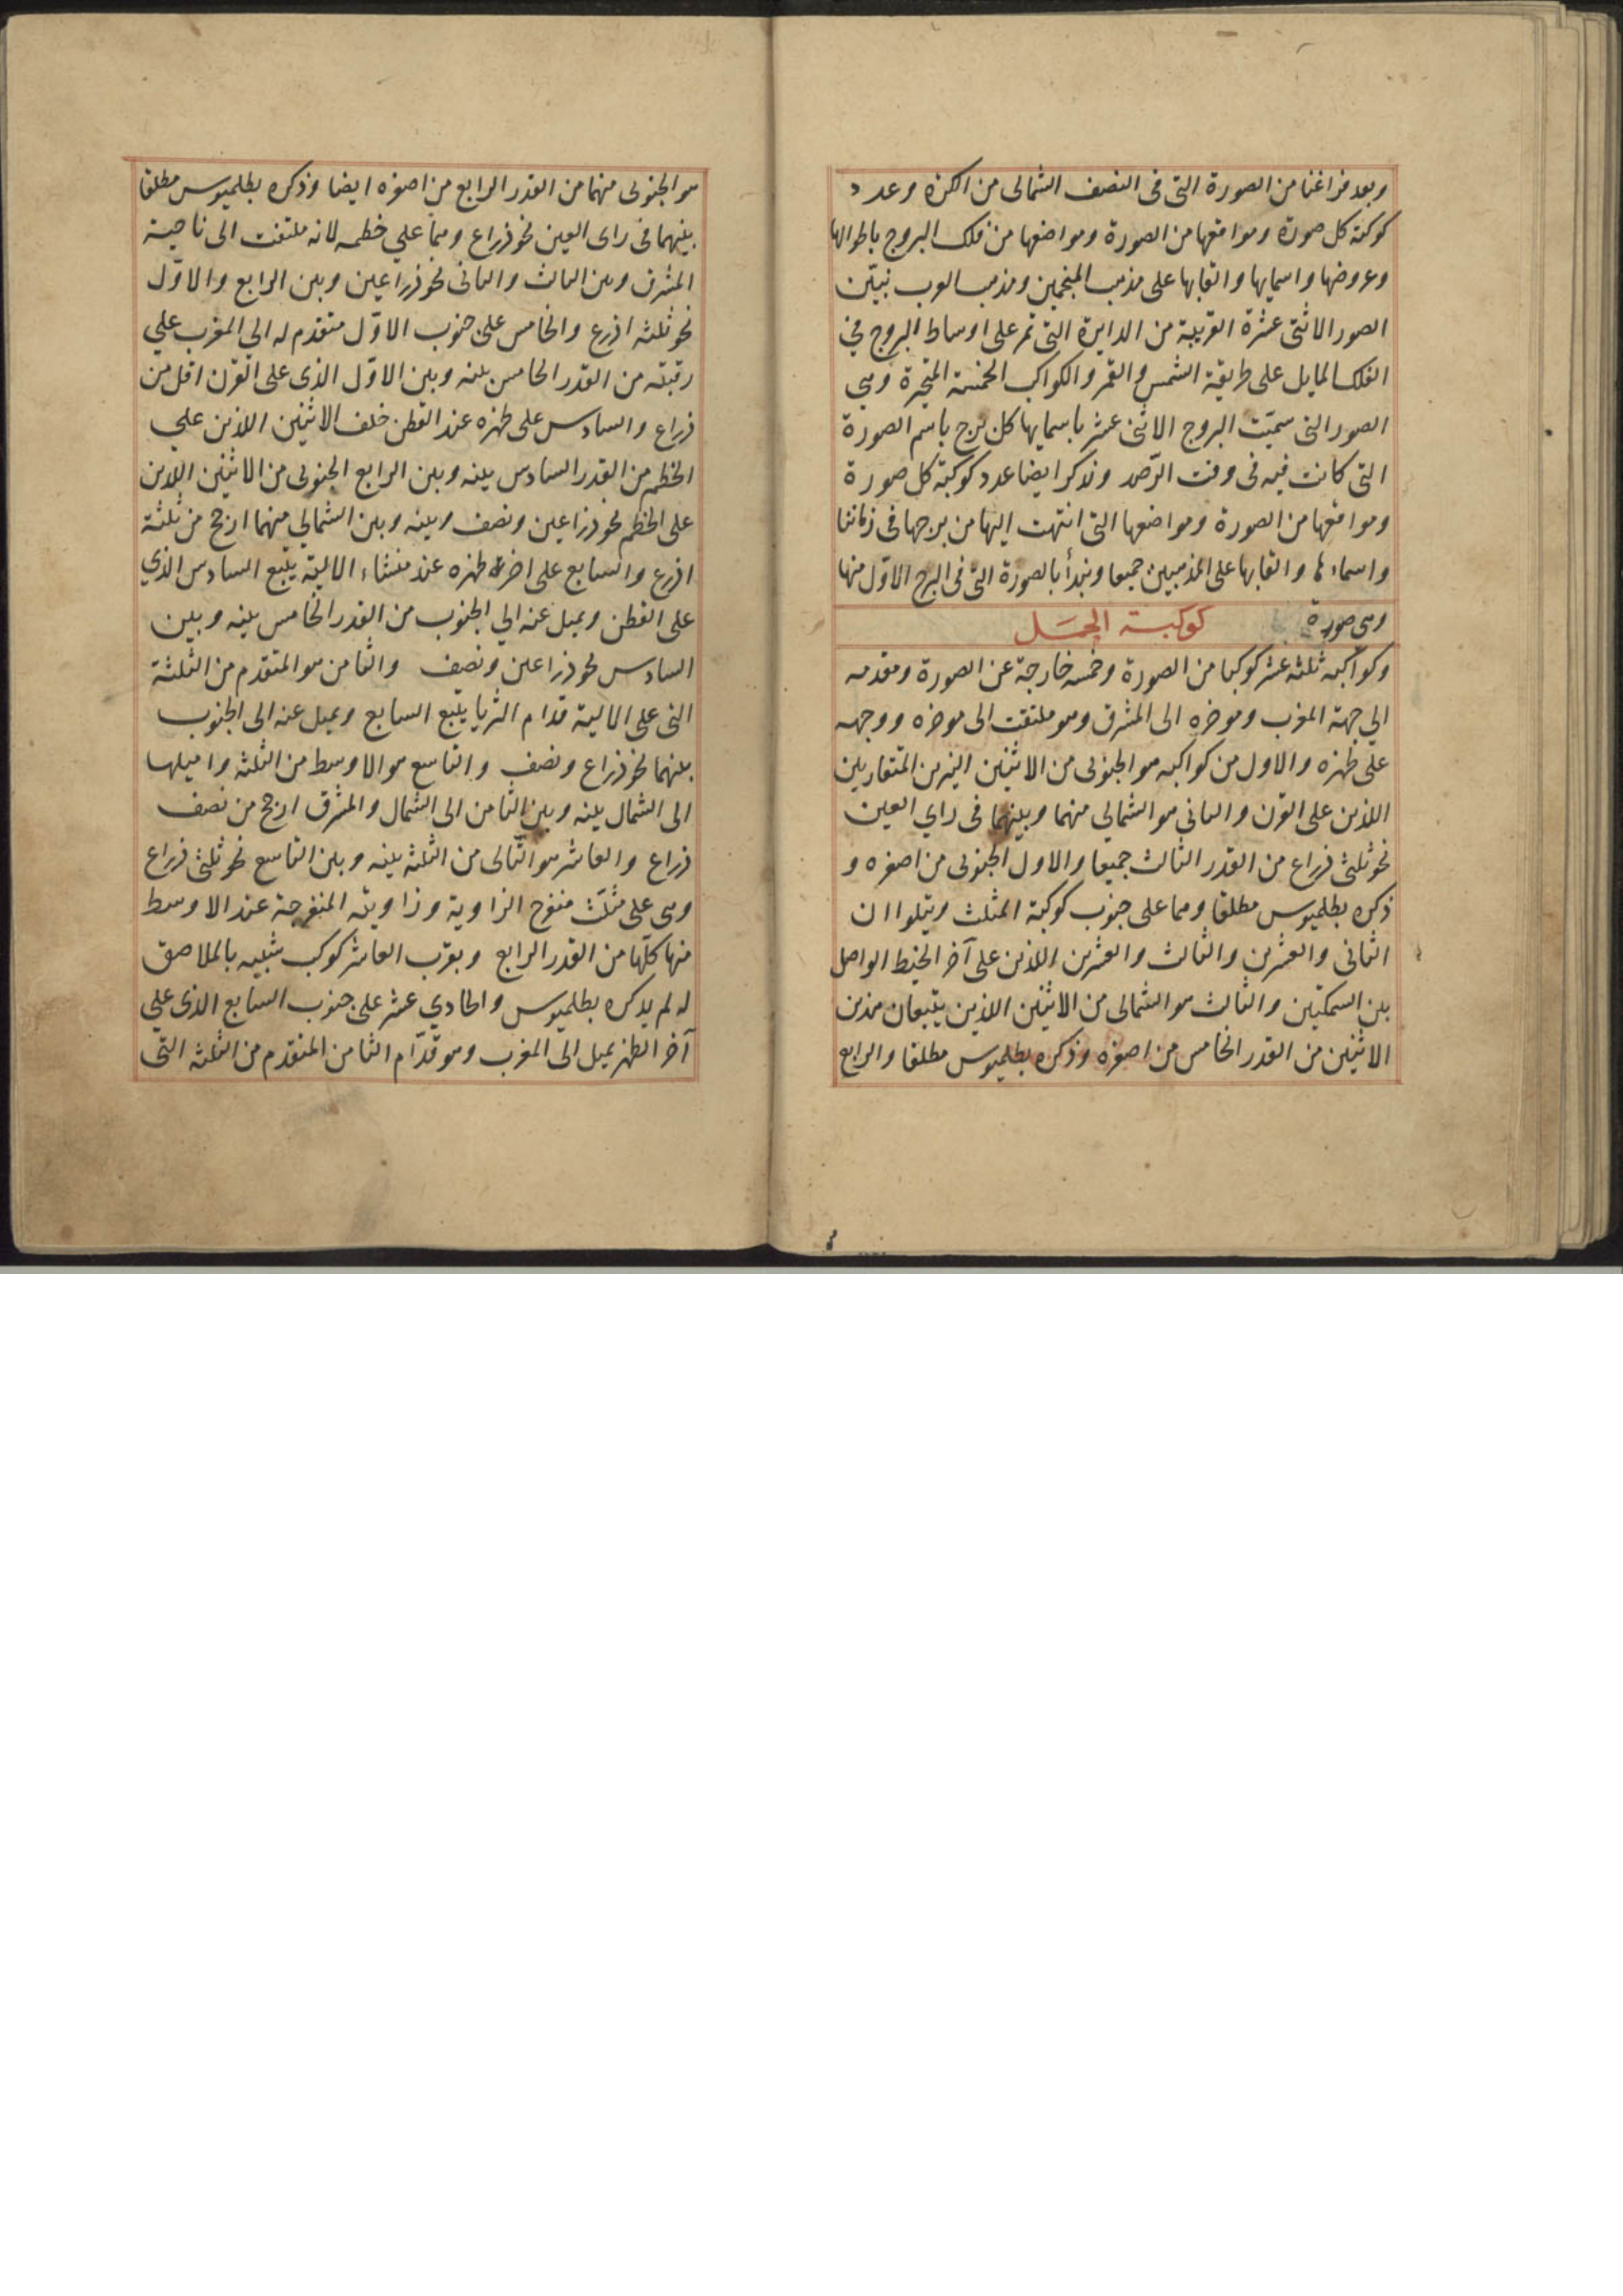 وبعد فراغنا من الصورة التى فى النصف الشمالى من الكرة وعدد
كوكبة كل صورة ومواقعها من الصورة ومواضعها من فلك البروج باطوالها
وعروضها واسمايها والقابها على مذهب المنجمين ومذهب العرب نبيّن
الصور الاثنتى عشرة القريبة من الدايرة التى تمر على اوساط البروج في
الفلك المايل على طريقة الشمس والقمر والكواكب الخمسة المتحيرة وهي
الصور التى سمّيت البروج الاثنى عشر باسمايها كل برج باسم الصورة
التى كانت فيه فى وقت الرّصد ونذكر ايضا عدد كوكبة كل صورة
ومواقعها من الصورة ومواضعها التى انتهت اليها من برجها فى زماننا
واسماءها والقابها على المذهبين جميعا ونبدأ بالصورة التى فى البرج الاوّل منها
وهى صورة كوكبة الحمَل
وكواكبه ثلثه عشر كوكبا من الصورة وخمسه خارجة عن الصورة ومقدمه
الي جهة المغرب وموخره الى المشرق وهو ملتفت الى موخره ووجهه
على ظهره والاول من كواكبه هو الجنوبى من الاثنين النيرين المتقاربين
اللذين على القرن والثانى هو الشمالى منهما وبينهما فى راي العين
نحو ثلثى ذراع من القدر الثالث جميعا والاول الجنوبى من اصغره و
ذكره بطلميوس مطلقا وهما على جنوب كوكبة المثلث ويتلواان
الثانى والعشرين والثالث والعشرين اللذين على آخر الخيط الواصل
بين السمكتين والثالث هو الشمالى من الاثنين اللذين يتبعان هذين
الاثنين من القدر الخامس من اصغره وذكره بطلميوس مطلقا والرابع
هو الجنوبى منهما من القدر الرابع من اصغره ايضا وذكره بطلميوس مطلقا
بينهما فى راى العين نحو ذراع وهما علي خطمه لانه ملتفت الى ناحية
المشرق وبين الثالث والثانى نحو ذراعين وبين الرابع والاوّل
نحو ثلثه اذرع والخامس على جنوب الاوّل متقدم له الى المغرب علي
رقبته من القدر الخامس بينه وبين الاوّل الذى على القرن اقل من
ذراع والسادس على ظهره عند القطن خلف الاثنين اللذين علي
الخطم من القدر السادس بينه وبين الرابع الجنوبى من الاثنين اللذين
على الخطم نحو ذراعين ونصف وبينه وبين الشمالي منهما ارجح من ثلثة
اذرع والسابع على اخرة ظهره عند منشاء الالية يتبع السادس الذي
على القطن ويميل عنه الي الجنوب من القدر الخامس بينه وبين
السادس نحو ذراعين ونصف والثامن هو المتقدم من الثلثة
التى على الالية قدام الثريا يتبع السابع ويميل عنه الى الجنوب
بينهما نحو ذراع ونصف والتاسع هو الاوسط من الثلثه واميلها
الى الشمال بينه وبين الثامن الى الشمال والمشرق ارجح من نصف
ذراع والعاشر هو التّالى من الثلثه بينه وبين التاسع نحو ثلثى ذراع
وهى على مثلّث منفرج الزاوية وزاويته المنفرجة عند الاوسط
منها كلّها من القدر الرابع وبقرب العاشر كوكب شبيه بالملاصق
له لم يذكره بطلميوس والحادي عشر على جنوب السابع الذى علي
آخر الظهر يميل الى المغرب وهو قدّام الثامن المتقدم من الثلثه التى